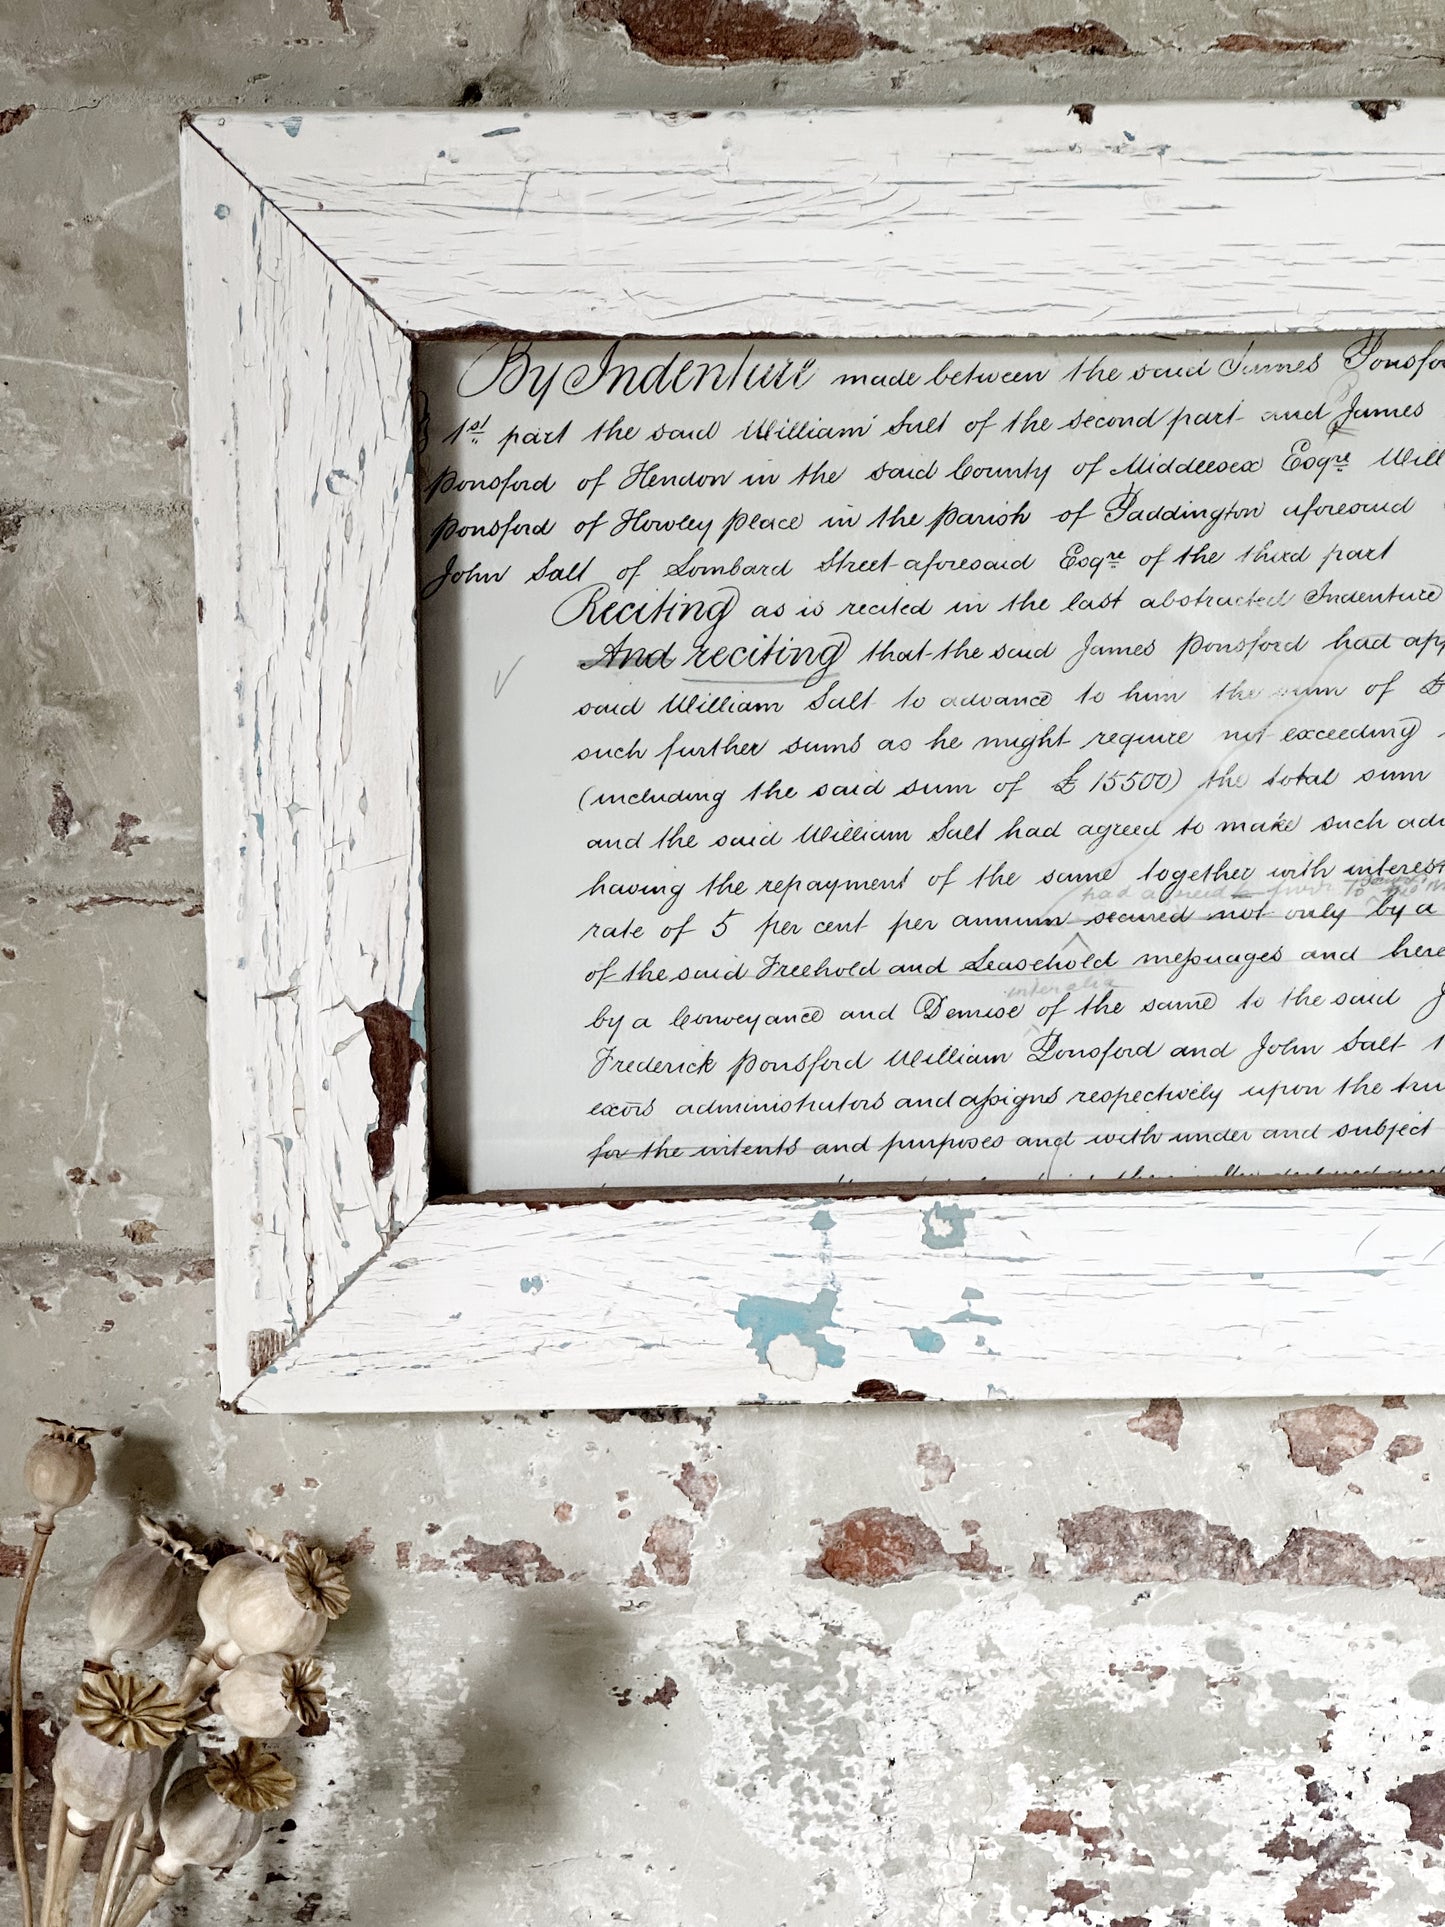 By Indenture made between the said James Ponsfor
1st part the said William Salt of the second part and James
Ponsford of Hendon in the said County of Middlesex Esqre Will
Ponsford of Howley Place in the Parish of Paddington aforesaid
John Salt of Lombard Street aforesaid Esqre of the third part
Reciting as is recited in the last abstracted Indenture
And reciting that the said James Ponsford had app
said William Salt to advance to him the sum of £
such further sums as he might require not exceeding
(including the said sum of £15500) the total sum
and the said William Salt had agreed to make such adv
having the repayment of the same together with interest
had agreed
rate of 5 per cent per annum secured not only by a
of the said Freehold and Leasehold messuages and here
inter alia
by a Conveyance and Demise of the same to the said J
Frederick Ponsford William Ponsford and John Salt
exors administrators and assigns respectively upon the tru
for the intents and purposes and with under and subject